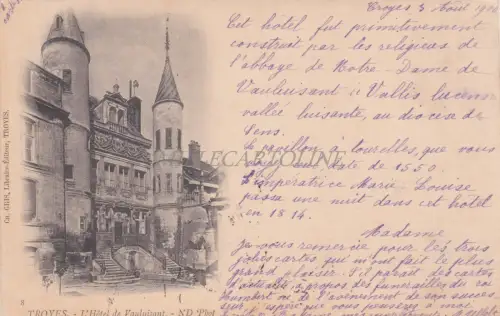 Troyes 3 Août 190
Cet hôtel fut primitivement
construit par les religieux de
l'abbaye de Notre-Dame de
Vauluisant (Vallis lucens
vallée luisante, au diocèse de
Sens.
Le pavillon à tourelles, que vous
date de 1550.
L'impératrice Marie-Louise
passa une nuit dans cet hôtel
en 1814.
Madame
je vous remercie pour les trois
jolies cartes qui m'ont fait le plus
grand plaisir. S'il paraît des cartes
d'actualité à propos des funérailles du roi
Humbert ou de l'avènement de son succes
seur, j'espère que vous penserez à moi.
CH. GRIS, Libraire-Éditeur, TROYES.
8
TROYES. - L'Hôtel de Vauluisant. - ND Phot
CARTOLINE